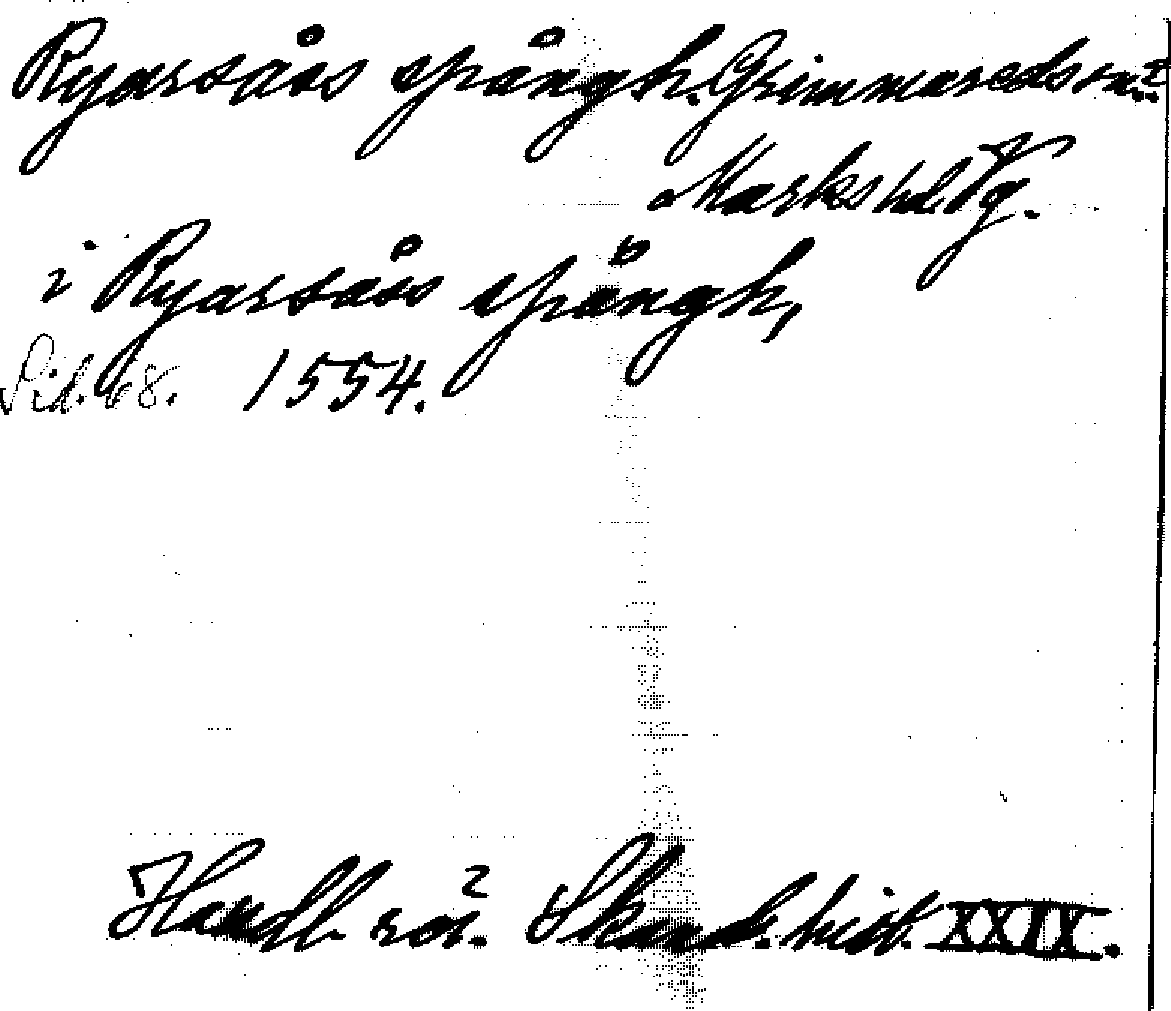 Ryarsåss spångh. Grimmareds sn?
Marks hd. Vg.
i Ryarsåss spångh,
Sid. 68. 1554.
Handl. rör. Skand. hist. XXIX.